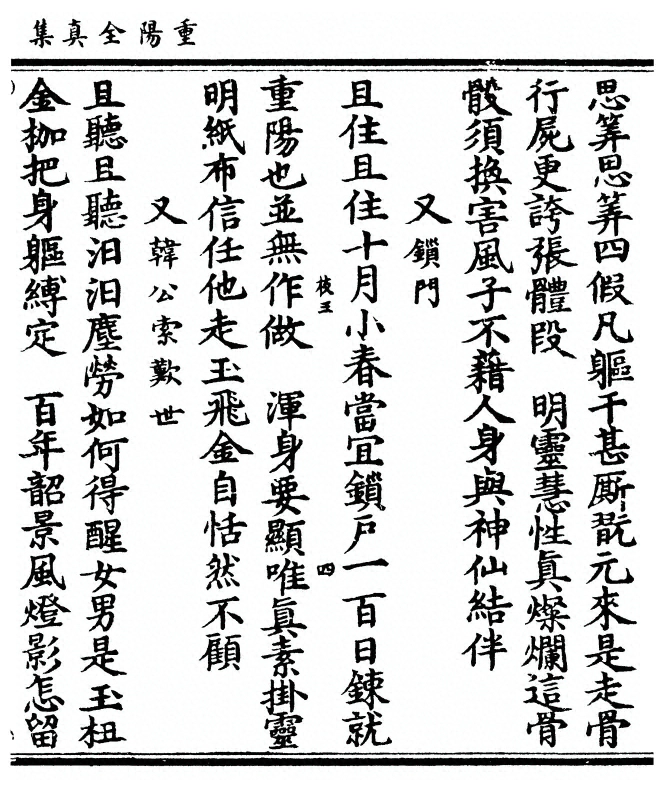 重陽全真集
思筭思筭四假凡軀干甚厮翫元來是走骨
行屍更誇張體段　明靈慧性真燦爛這骨
骰須換害風子不藉人身與神仙結伴
又鎖門
且住且住十月小春當宜鎖戶一百日鍊就
重陽也並無作做　渾身要顯唯真素掛靈
枝五
四
明紙布信任他走玉飛金自恬然不顧
又韓公索歎世
且聽且聽汨汨塵勞如何得醒女男是玉杻
金枷把身軀縛定　百年韶景風燈影怎留